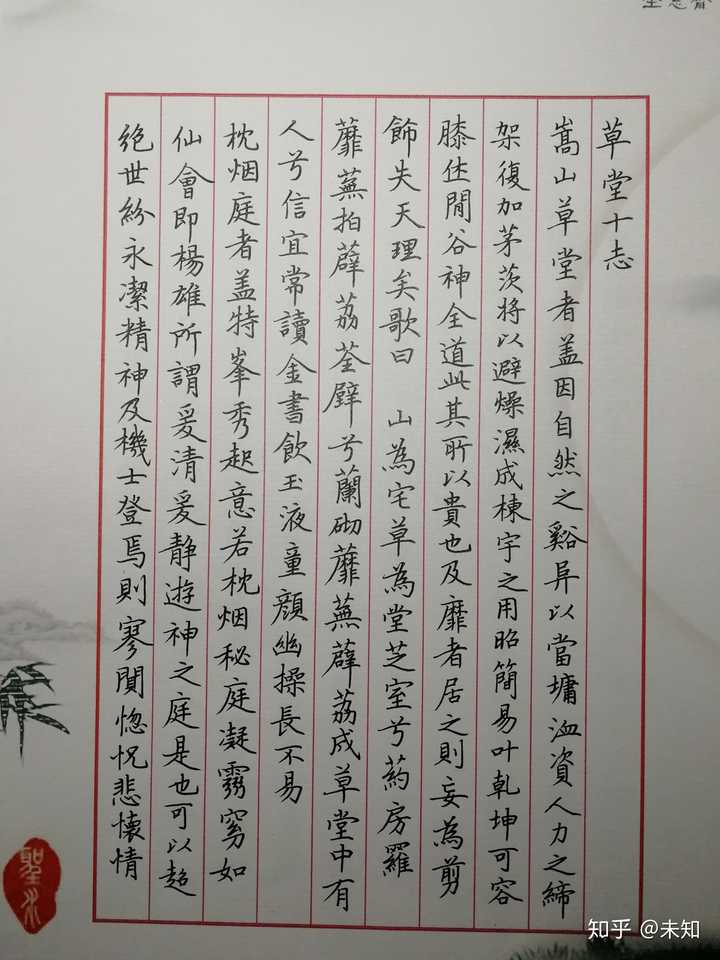 草堂十志
嵩山草堂者盖因自然之谿阜以當墉洫資人力之締
架復加茅茨將以避燥濕成棟宇之用昭簡易叶乾坤可容
膝休閒谷神全道此其所以貴也及靡者居之則妄為剪
飾失天理矣歌曰 山為宅草為堂芝室兮葯房羅
蘼蕪拍薜荔荃壁兮蘭砌蘼蕪薜荔成草堂中有
人兮信宜常讀金書飲玉液童顔幽操長不易
枕烟庭者盖特峯秀起意若枕烟秘庭凝霧窅如
仙會即楊雄所謂爰清爰静遊神之庭是也可以超
絕世紛永潔精神及機士登焉則寥闃惚怳悲懷情
聖水
知乎 @未知